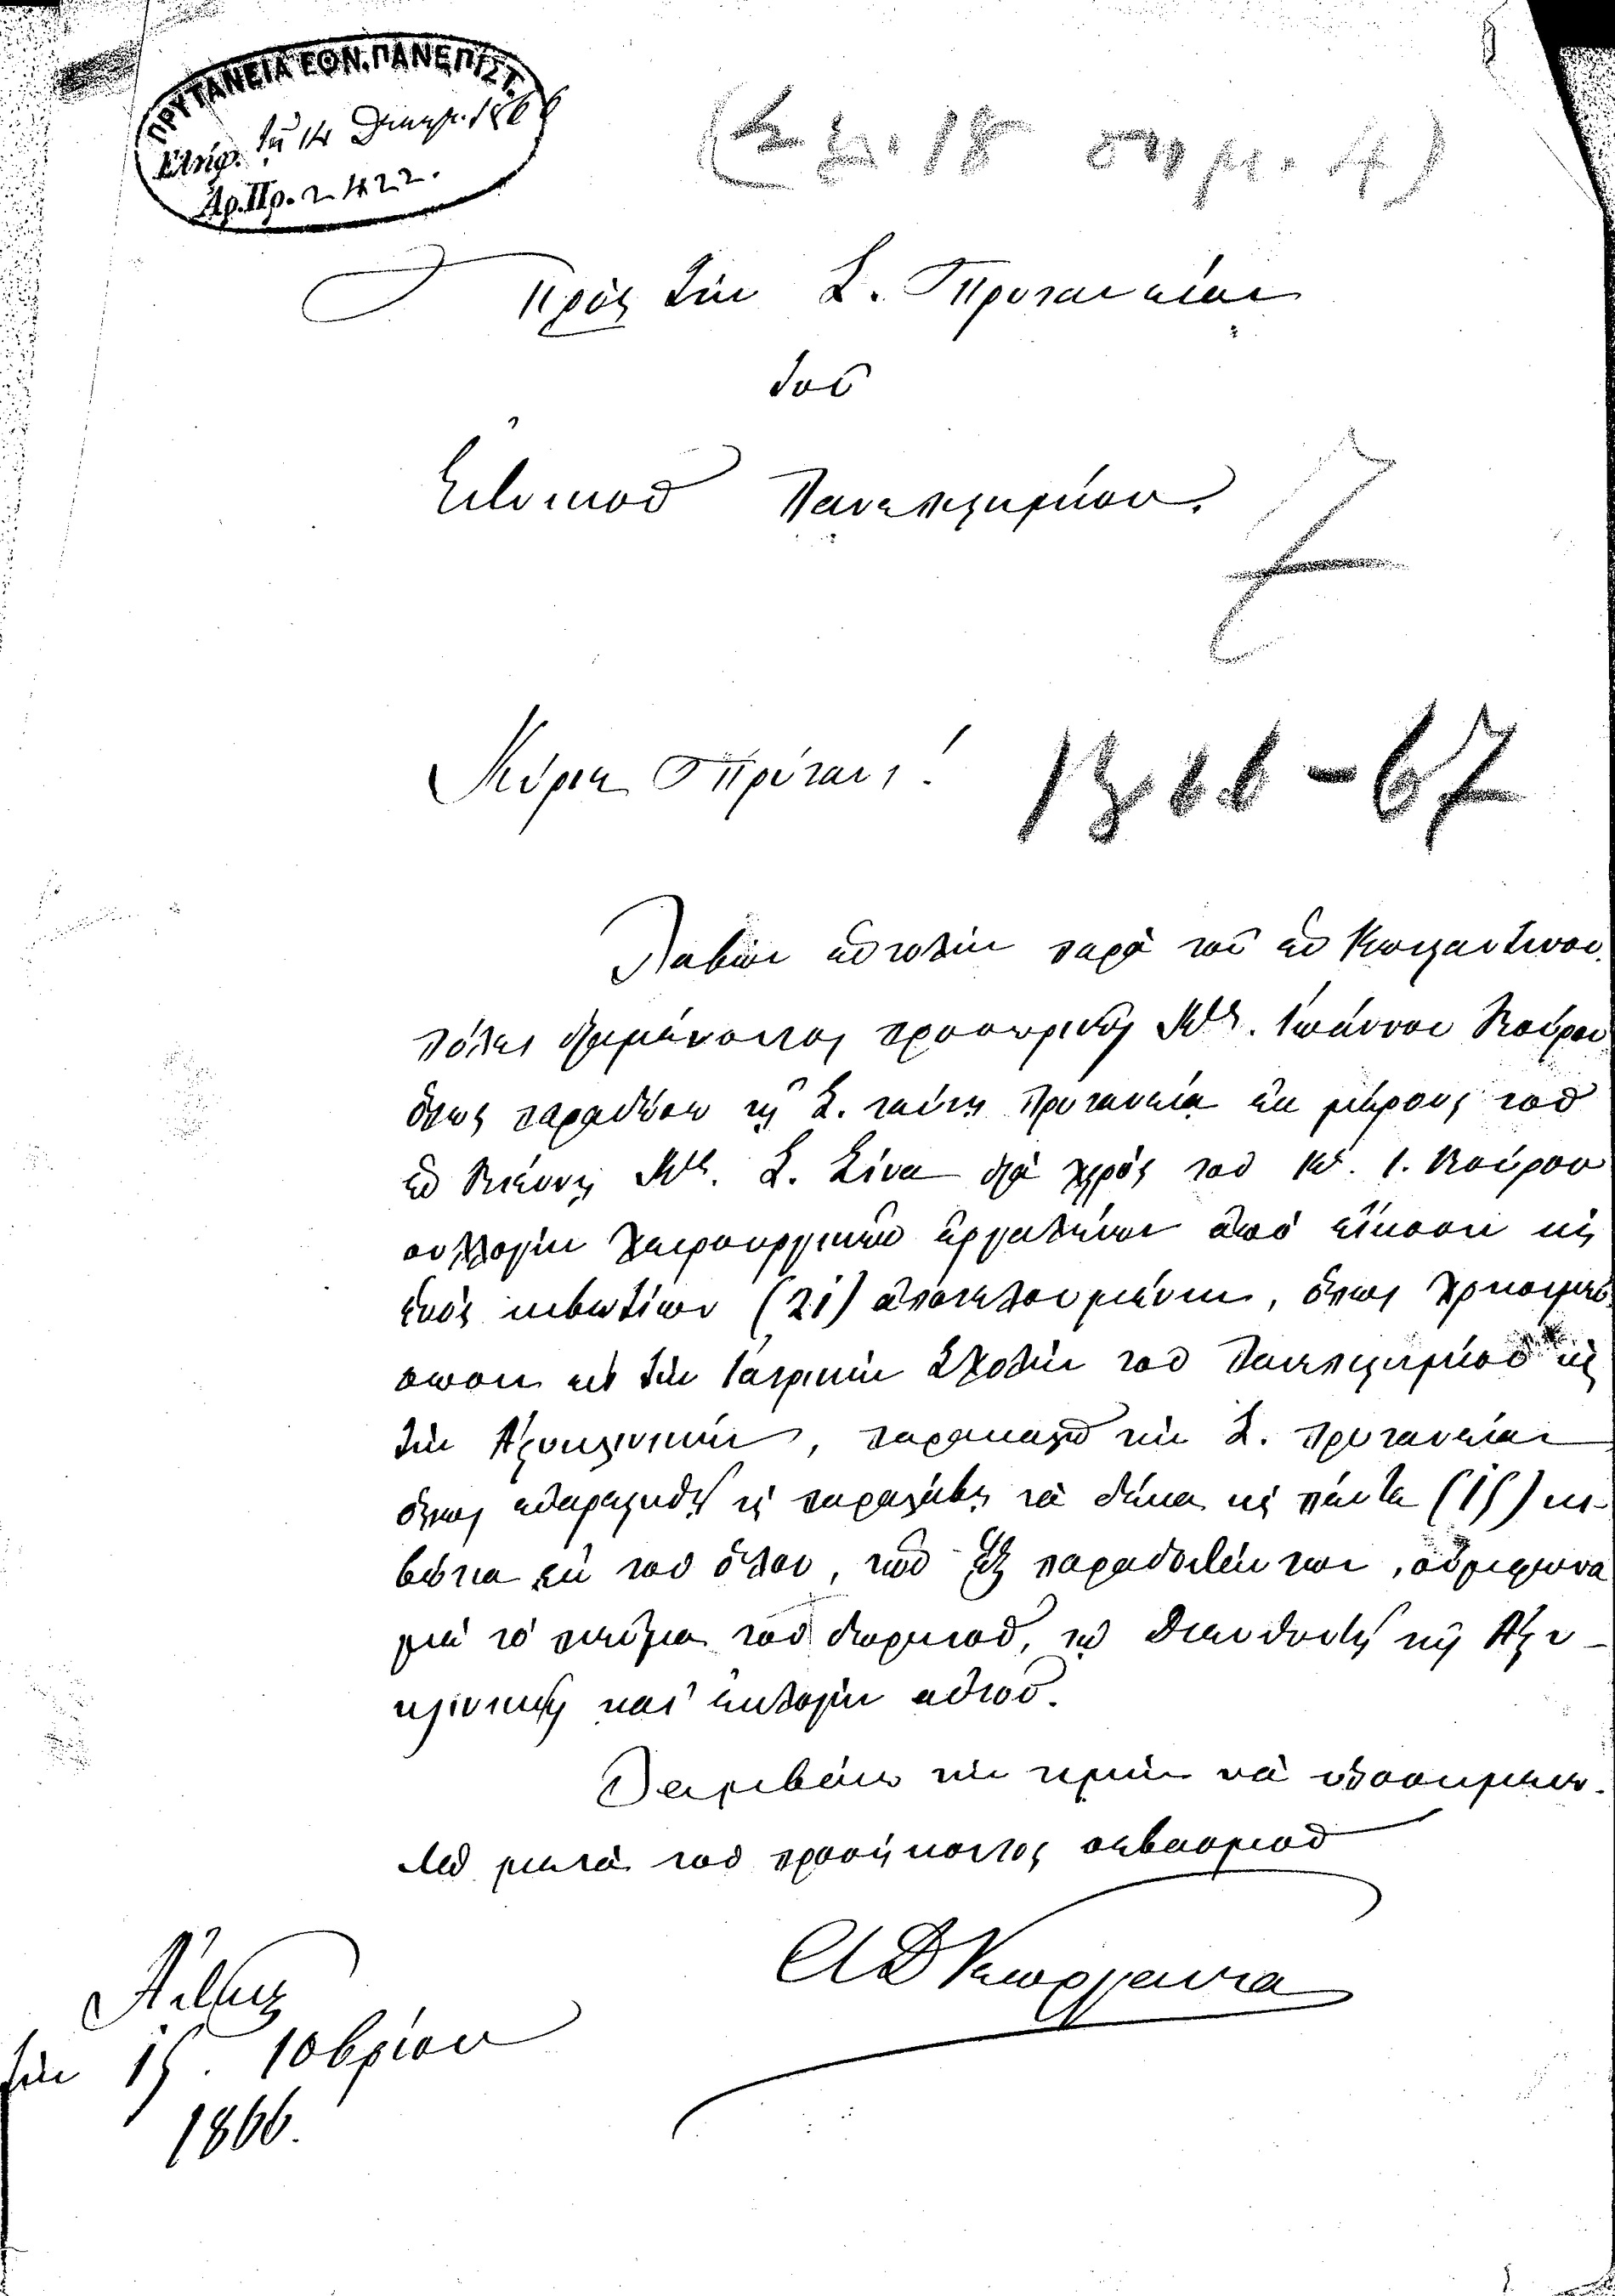 ΠΡΥΤΑΝΕΙΑ ΕΘΝ. ΠΑΝΕΠΙΣΤ.
Ἐλήφ. τῇ 14 Δεκεμ. 1866
Ἀρ. Πρ. 2422.
18 σημ. 4)
Πρὸς τὴν Σ. Πρυτανείαν
τοῦ
Ἐθνικοῦ Πανεπιστημίου.
Κύριε Πρύτανι!
1866-67
Λαβὼν ἐντολὴν παρὰ τοῦ ἐν Κωνσταντινου
πόλει προσωρινῶς Ἰωάννου Κούρου
ὅπως παραδώσω τῇ Σ. ταύτῃ Πρυτανείᾳ ἐκ μέρους τοῦ
ἐν Βιέννῃ Σ. Σίνα διὰ χειρὸς τοῦ Κ. Ι. Κούρου
συλλογὴν χειρουργικῶν ἐργαλείων ἀπὸ εἴκοσι καὶ
ἑνὸς κιβωτίων (21) ἀποτελουμένην, ὅπως χρησιμεύ
σωσιν εἰς τὴν Ἰατρικὴν Σχολὴν τοῦ Πανεπιστημίου καὶ
τὴν Ἀστυκλινικήν, παρακαλῶ τὴν Σ. Πρυτανείαν
ὅπως εὐαρεστηθῇ καὶ παραλάβῃ τὰ δέκα καὶ πέντε (15) κι-
βώτια ἐκ τοῦ ὅλου, τῶν ἓξ παραδοθέντων, σύμφωνα
μὲ τὸ πνεῦμα τοῦ δωρητοῦ, τῷ Διευθυντῇ τῆς Ἀστυ-
κλινικῆς κατ' ἐκλογὴν αὐτοῦ.
Λαμβάνω τὴν τιμὴν νὰ ὑποσημειω-
θῶ μετὰ τοῦ προσήκοντος σεβασμοῦ
Ἀθῆναι
τὴν 15 10βρίου
1866.